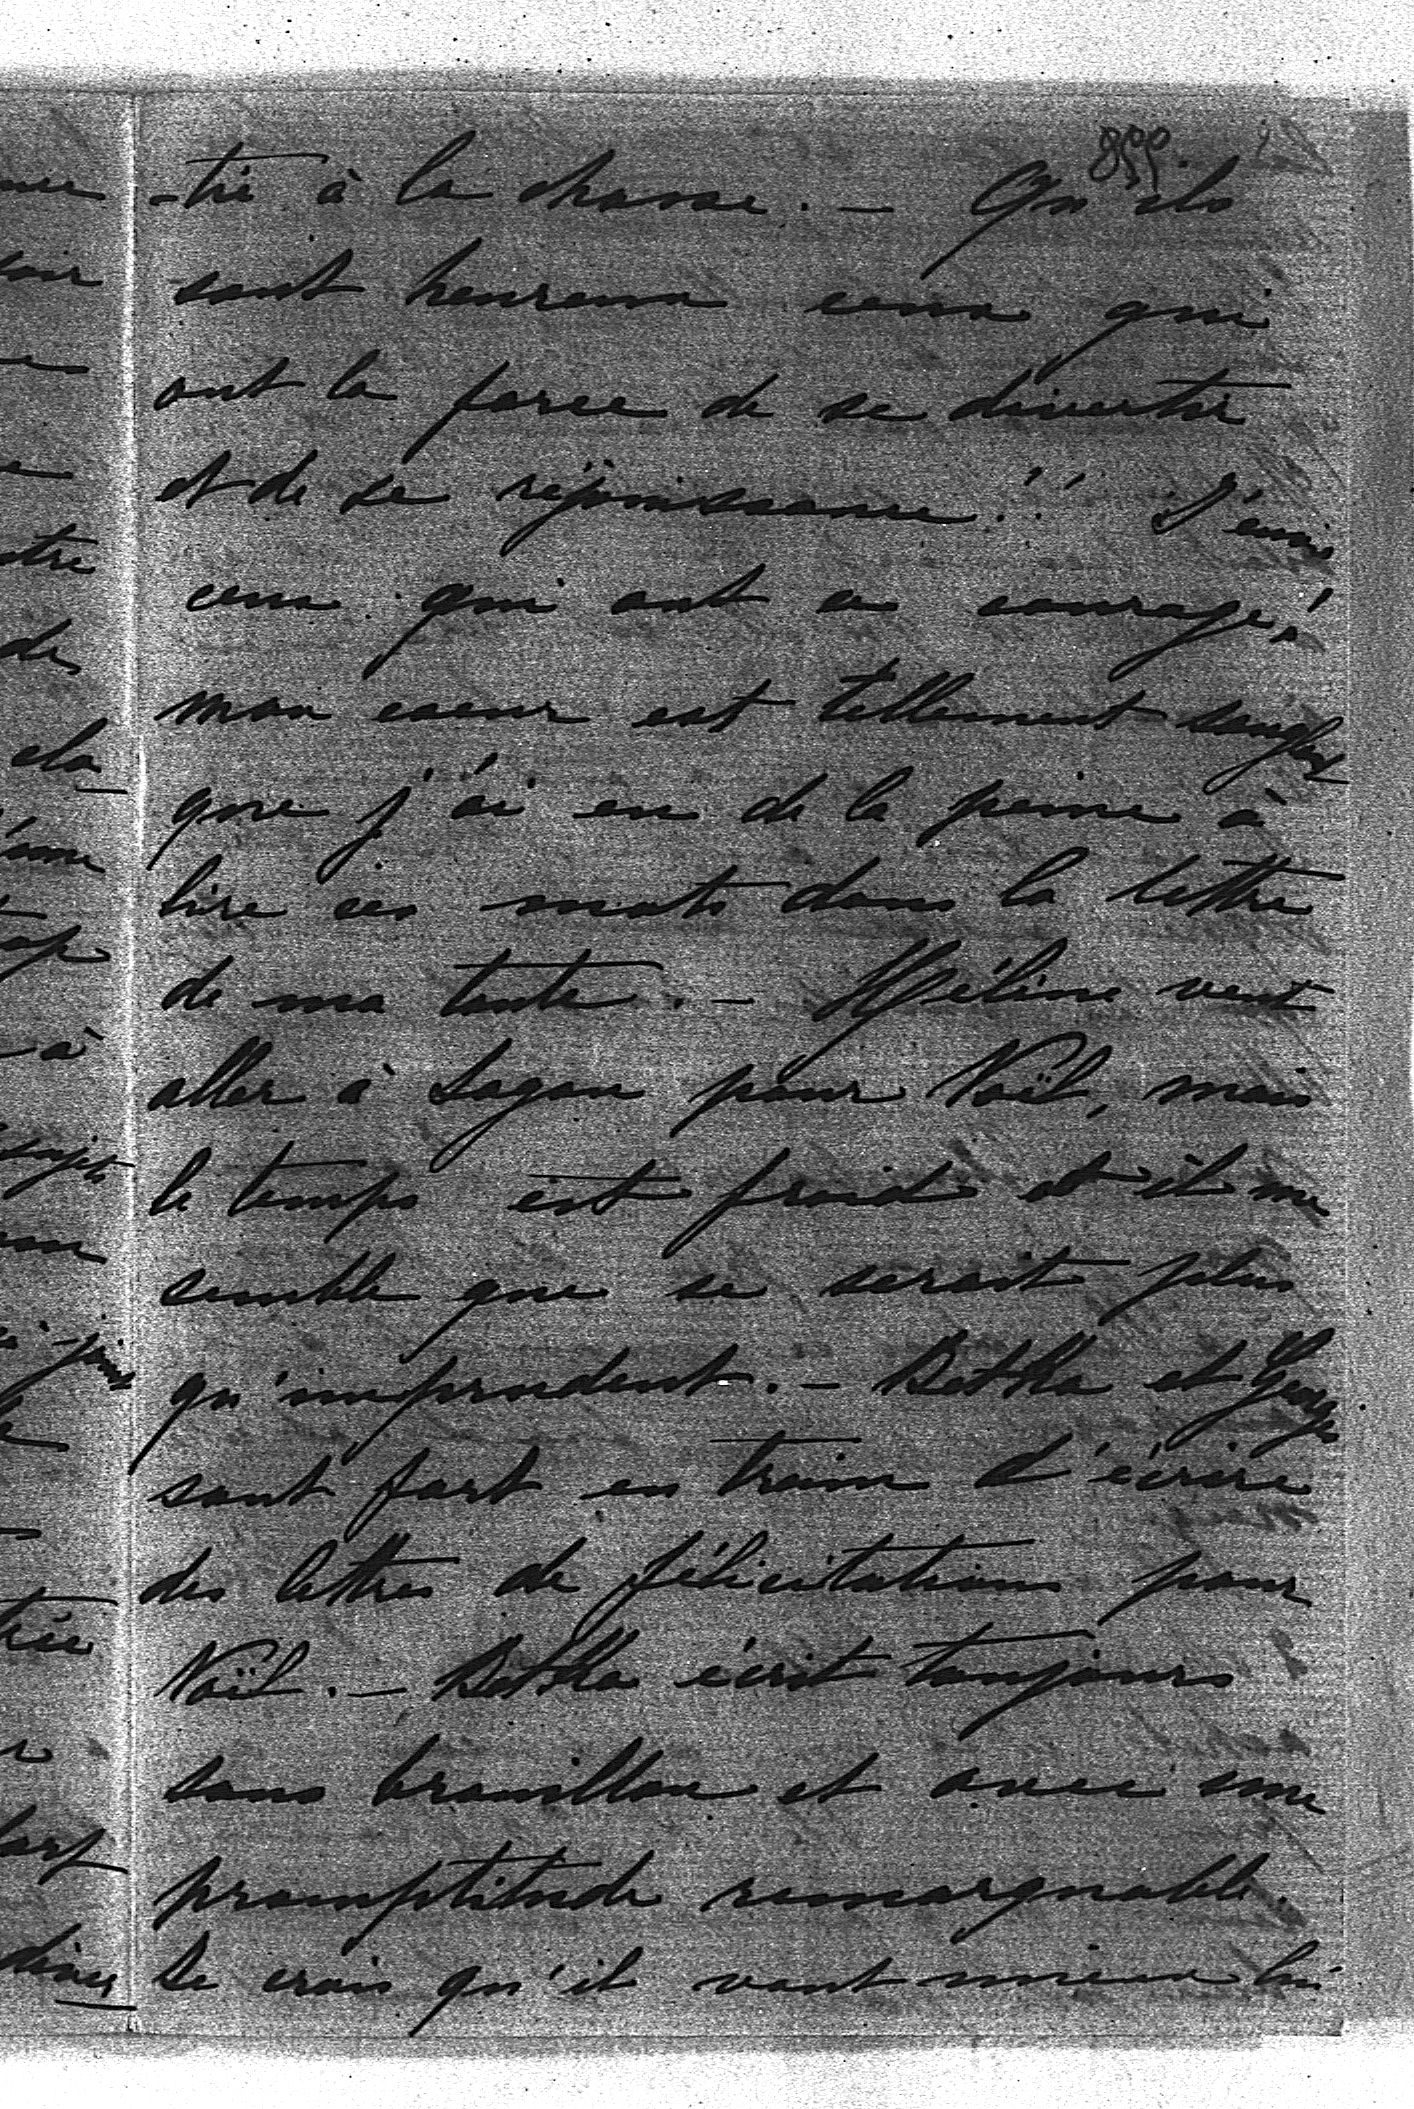 -tie à la chasse. — Qu'ils
sont heureux ceux qui
ont la force de se divertir
et de se réjouissance!! J'envie
ceux qui ont ce courage,
mon coeur est tellement
que j'ai eu de la peine à
lire ces mots dans la lettre
de ma tante. — Hélène veut
aller à Sagan pour Noël, mais
le temps est froid et il me
semble que se serait plus
qu'imprudent. — Betka et George
sont fort en train d'écrire
des lettres de félicitations pour
Noël. — Betka écrit toujours
sans brouillon et avec une
promptitude remarquable.
Je crois qu'il vaut mieux lui